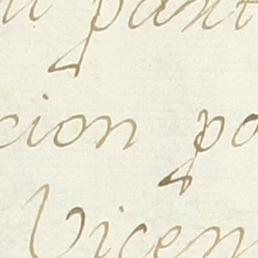 pant
cion po
Vicen